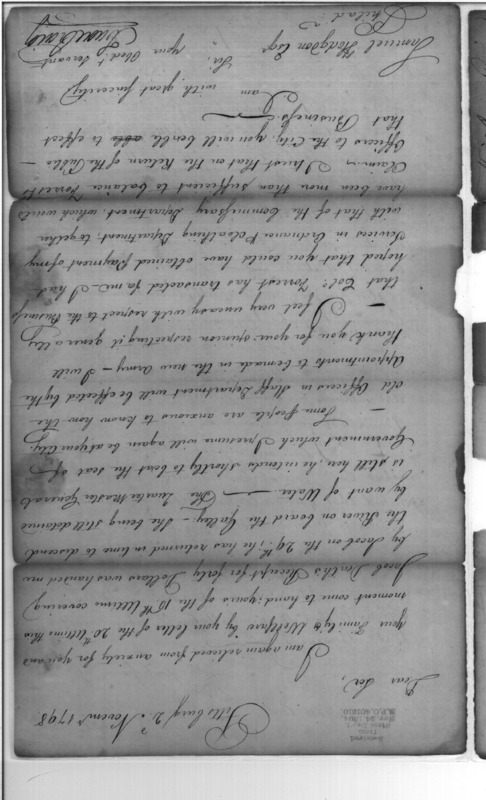 Pittsburg 2.d Novem.r 1798
Dear Sir,
I am again relieved from anxiety for you and
your Family's Wellfare by your letter of the 20th Ultimo this
moment come to hand; yours of the 10th Ultimo covering
Jacob Receipt for forty Dollars was handed me
by Jacob on the 29th, he has returned in time to descend
the River on board the Galley. She being still detained
by want of Water. — The Quarter Master General
is still here, he intends shortly to visit the seat of
Government which I presume will again be at your City.
— Some People are anxious to know how the
old Officers in Staff Department will be effected by the
Appointments to be made in the new Army — I will
thank you for your opinion respecting it generally
— I feel very uneasy with respect to the Business
that Col: Forrest has transacted for me. I had
hoped that you could have obtained payment of my
Services in Ordnance & Cloathing Department together
with that of the Commissary Department which would
have been more than sufficient to balance Forrest's
Claim. I trust that on the Return of the Public
Officers to the City, you will be able to effect
that Business. —
I am with great sincerity
Sir,
your Obed.t Servant
Isaac Craig
Samuel Hodgdon Esq.r
Philad.a
Received
from
War Dept.